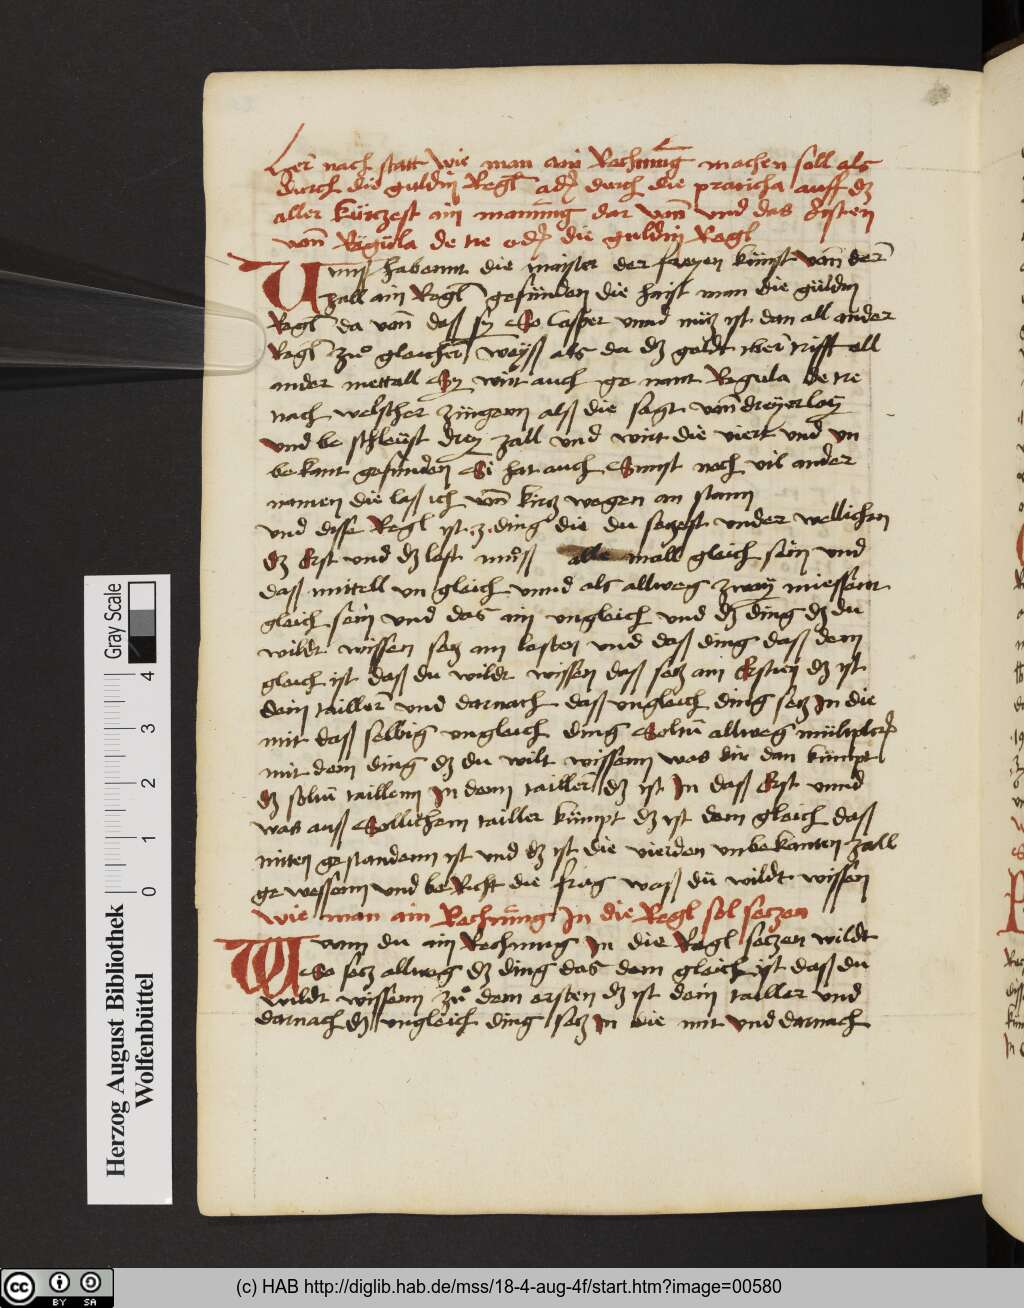 Her nach statt wie man ain Rechnung machen soll als
durch die guldin Regl od durch die praticha auff dz
aller kürczest ain mainung dar von und das Ersten
von Rigula de tre od die guldin Regl
Unnß habennt die maister der freyen künst von der
zall ain Regl gefünden die haist man die güldin
Regl da von daß sy So Casper unnd nüz ist dan all ander
Regl zů gleicher weyß als da dz goldt über trifft all
ander mettall Sy wirt auch ge nant Regula de tre
nach welscher züngenn alß die sagt von dreyerlay
und be schleüst drey zall und wirt die viert und un
bekant gefunden Si hat auch Sunst noch vil ander
namen die laß ich von kürz wegen an stann
und disse Regl ist 3 ding die du seczest under wellichen
dz Erst und dz lest můß alle mall gleich sein und
daß mittell un gleich unnd als allweg zway miessent
gleich sein und das ain ungleich und dz ding dz du
wildt wissen secz am lesten und daß ding daß dem
gleich ist daß du wildt wissen daß secz am Ersten dz ist
dein tailler und darnach daß ungleich ding secz In die
mit daß selbig ungleich ding Soltu allweg multplicir
mit dem ding dz du wilt wissenn was dir dan kümpt
dz soltu taillenn In denn tailler dz ist In daß Erst unnd
was auß Sollichem tailler kümpt dz ist dem gleich daß
mitten gestandenn ist und dz ist die vierden unbekanten zall
ge wessenn und be Richt die frag waß dü wildt wissen
wie man ain Rechnung In die Regl sol seczen
Wann du ain Rechnung In die Regl seczen wildt
So secz allweg dz ding das dem gleich ist daß du
wildt wissenn zů dem ersten dz ist dein tailler und
darnach dz ungleich ding secz In die mit und darnach
Gray Scale
0 1 2 3 4
Herzog August Bibliothek
Wolfenbüttel
cc BY SA
(c) HAB http://diglib.hab.de/mss/18-4-aug-4f/start.htm?image=00580